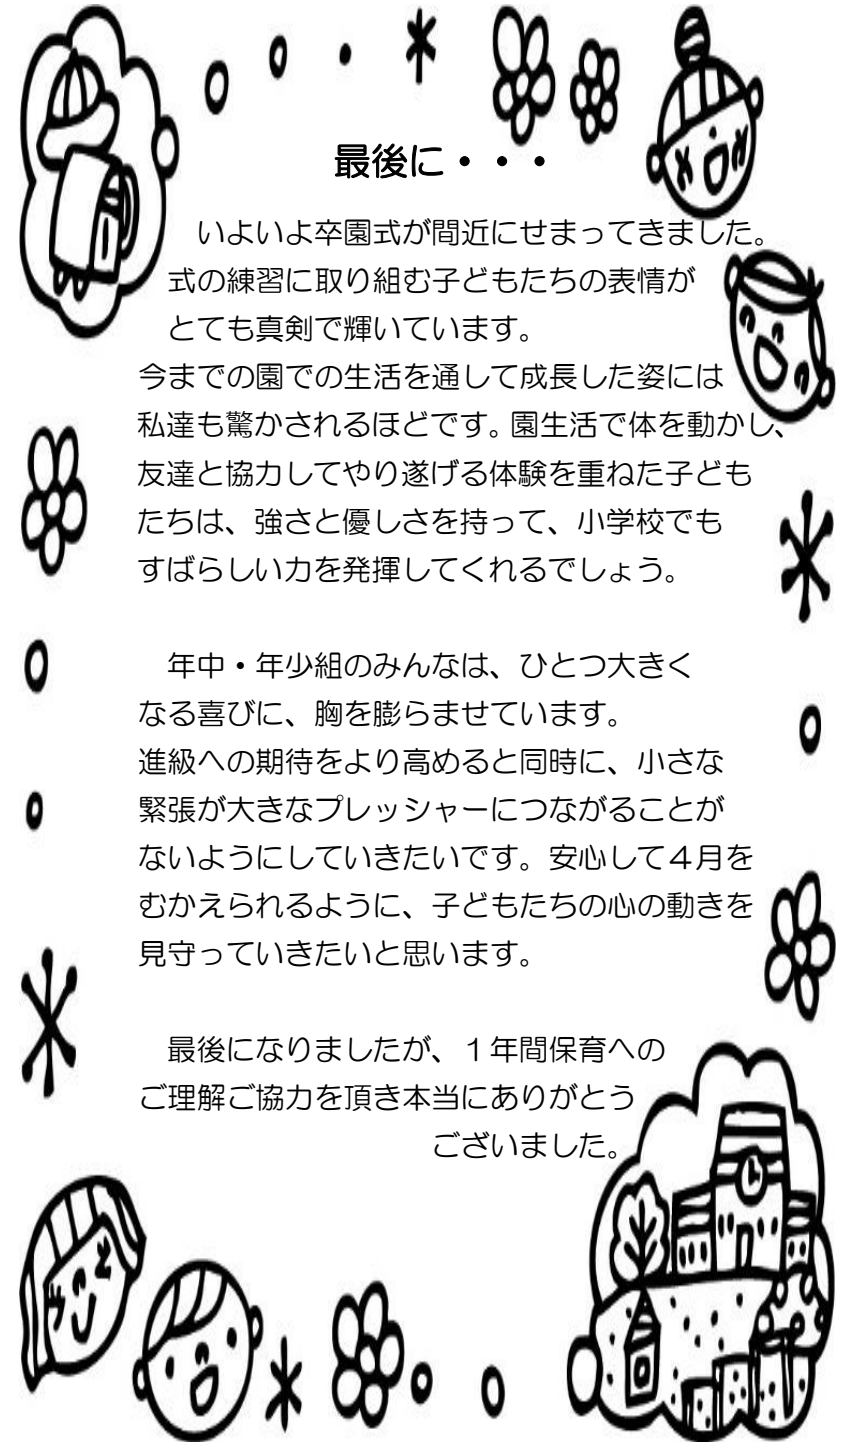 最後に・・・
いよいよ卒園式が間近にせまってきました。
式の練習に取り組む子どもたちの表情が
とても真剣で輝いています。
今までの園での生活を通して成長した姿には
私達も驚かされるほどです。園生活で体を動かし、
友達と協力してやり遂げる体験を重ねた子ども
たちは、強さと優しさを持って、小学校でも
すばらしい力を発揮してくれるでしょう。
年中・年少組のみんなは、ひとつ大きく
なる喜びに、胸を膨らませています。
進級への期待をより高めると同時に、小さな
緊張が大きなプレッシャーにつながることが
ないようにしていきたいです。安心して４月を
むかえられるように、子どもたちの心の動きを
見守っていきたいと思います。
最後になりましたが、１年間保育への
ご理解ご協力を頂き本当にありがとう
ございました。